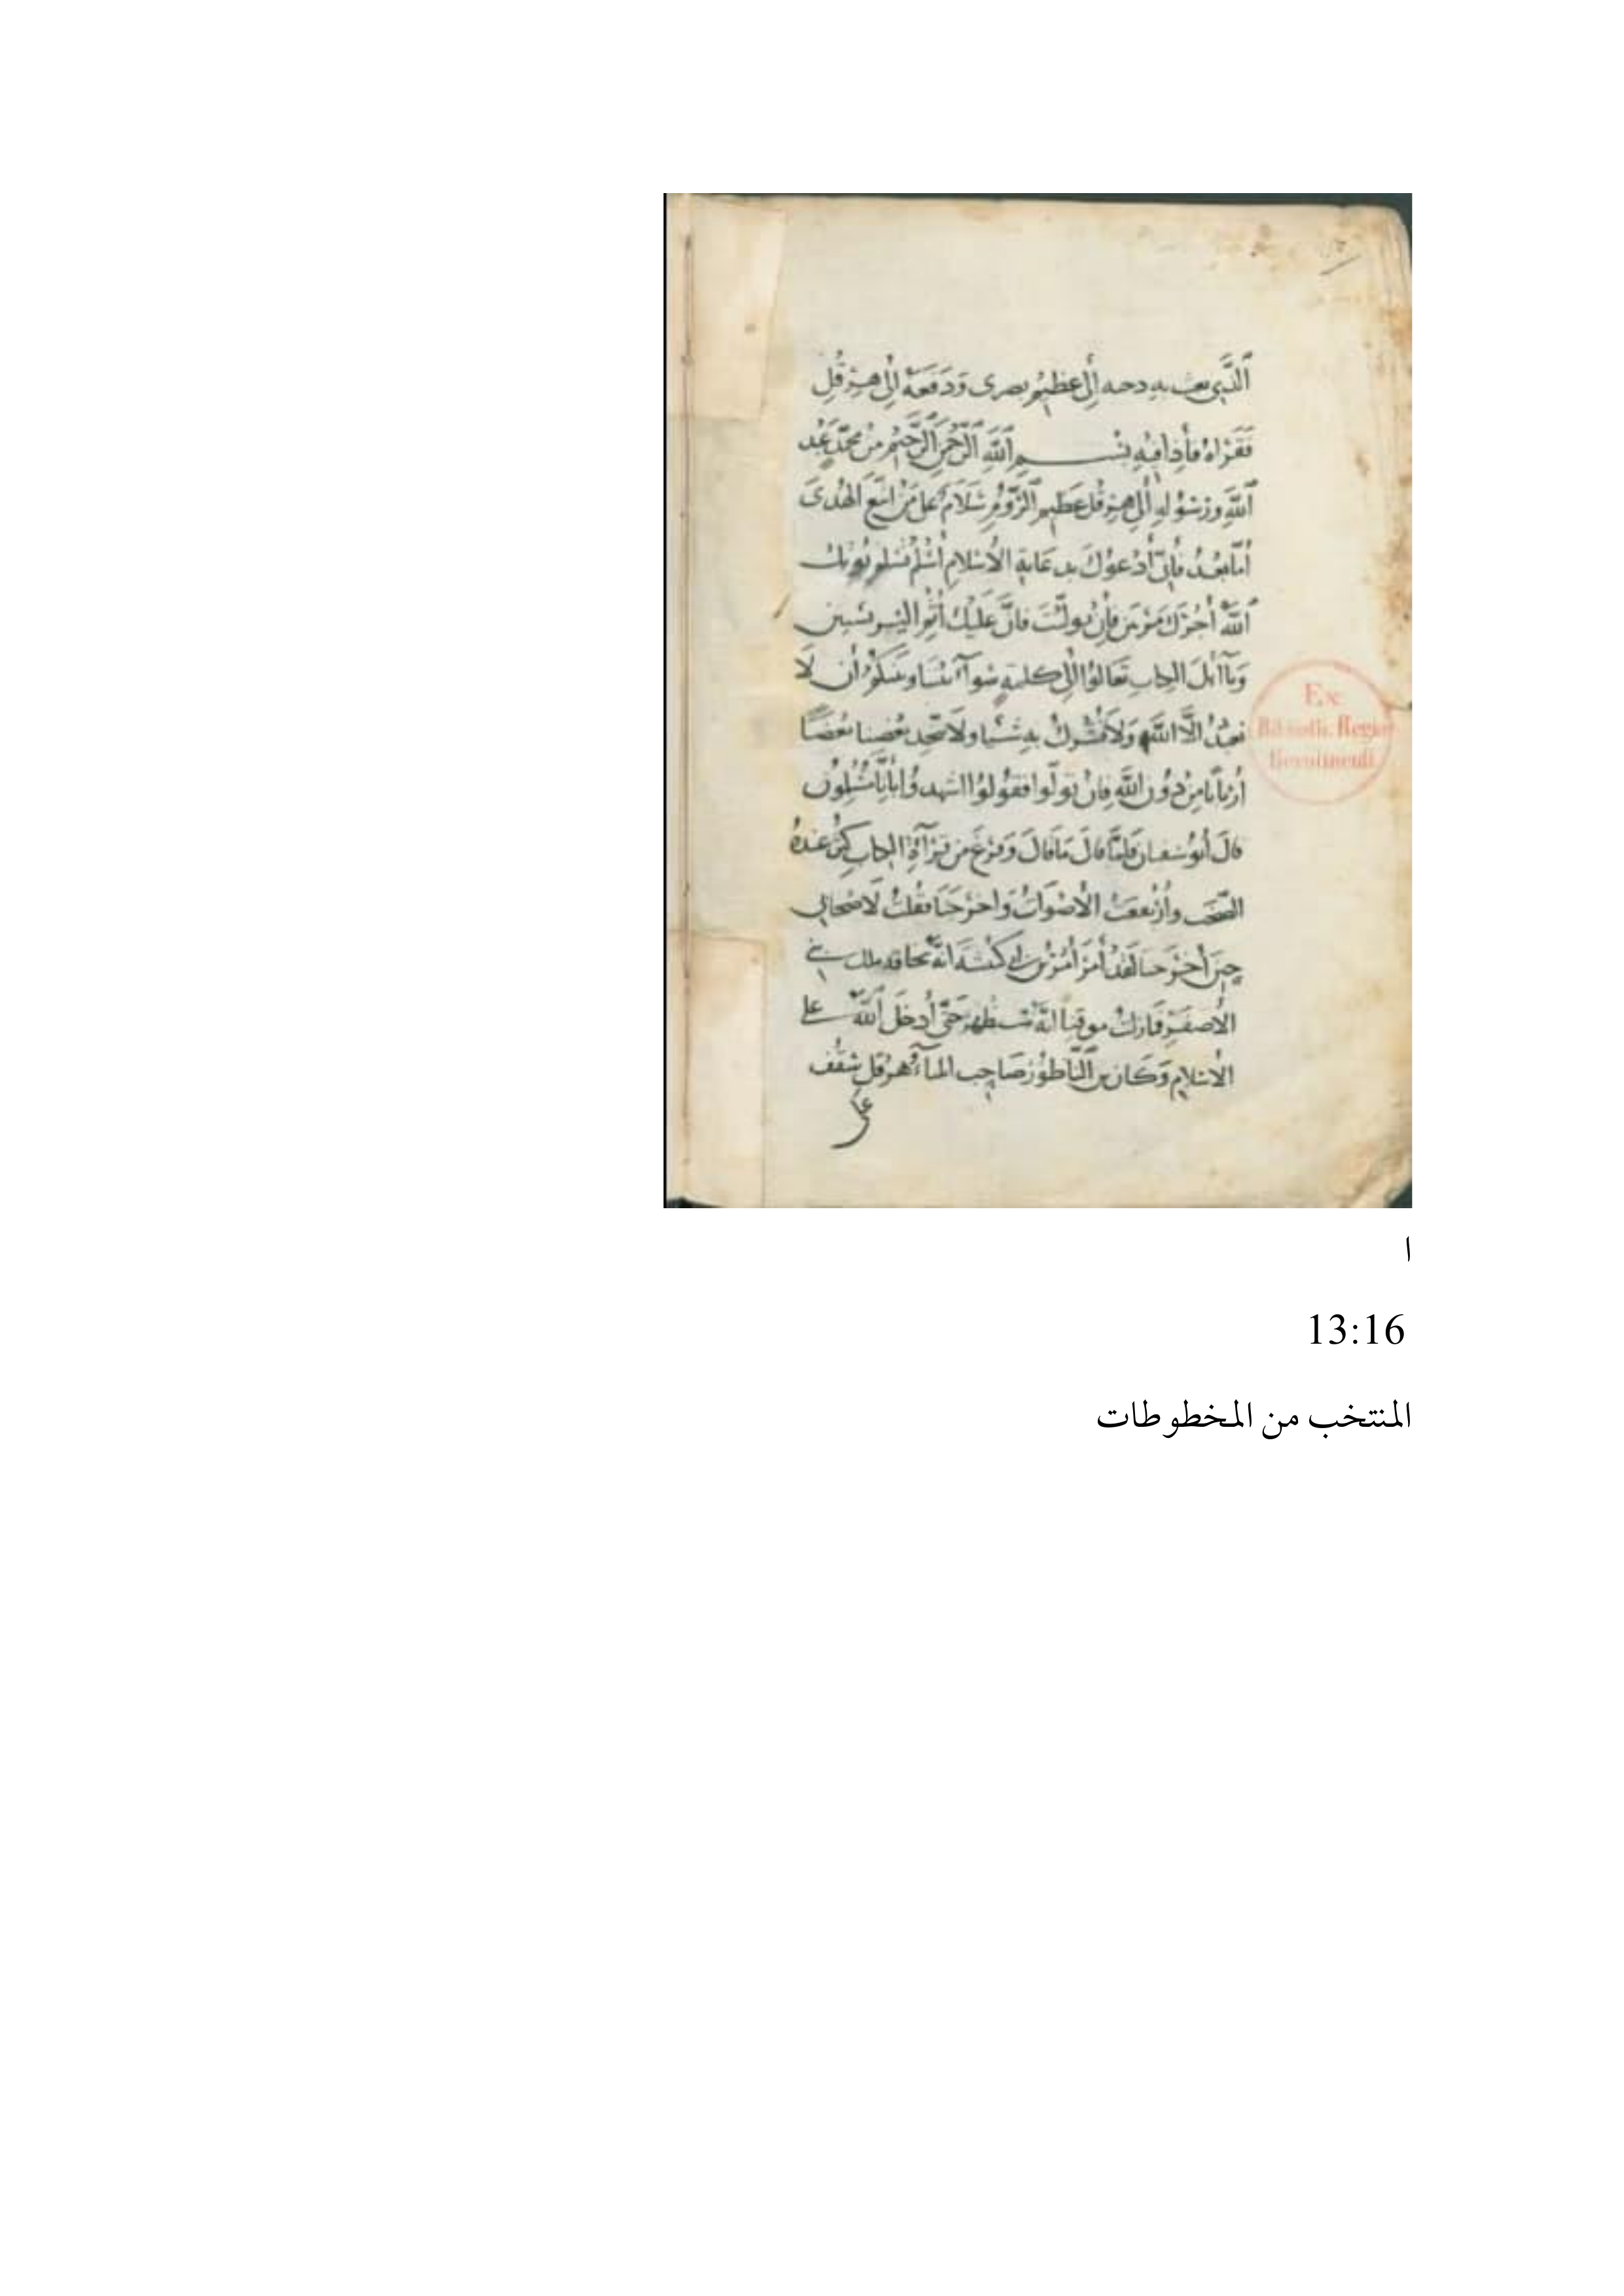 الذي بعث به دحيه إلى عظيم بصرى ودفعه إلى هرقل
فقراه فأذا فيه بسم الله الرحمن الرحيم من محمد عبد
الله ورسوله إلى هرقل عظيم الروم سلام على من اتبع الهدى
أما بعد فإني أدعوك بدعاية الاسلام أسلم تسلم يوتك
الله أجرك مرتين فإن توليت فان عليك أثم اليريسيين
ويا أهل الكتاب تعالوا إلى كلمة سوآء بيننا وبينكم أن لا
نعبد الا الله ولا نشرك به شيا ولا يتخذ بعضنا بعضا
أربابا من دون الله فان تولوا فقولوا اشهدوا بأنا مسلمون
قال أبو سفيان فلما قال ما قال وفرغ من قرآءة الكتاب كثر عنده
الصخب وارتفعت الأصوات واخرجنا فقلت لأصحابي
حين أخرجنا لقد أمر أمر بن ابي كبشه انه يخافه ملك بني
الأصفر فما زلت موقنا انه سيظهر حتى أدخل الله على
الاسلام وكان بن الناطور صاحب ايليآء وهرقل سقف
على
Ex
Biblioth. Regia
Berolinensi
ا
13:16
المنتخب من المخطوطات